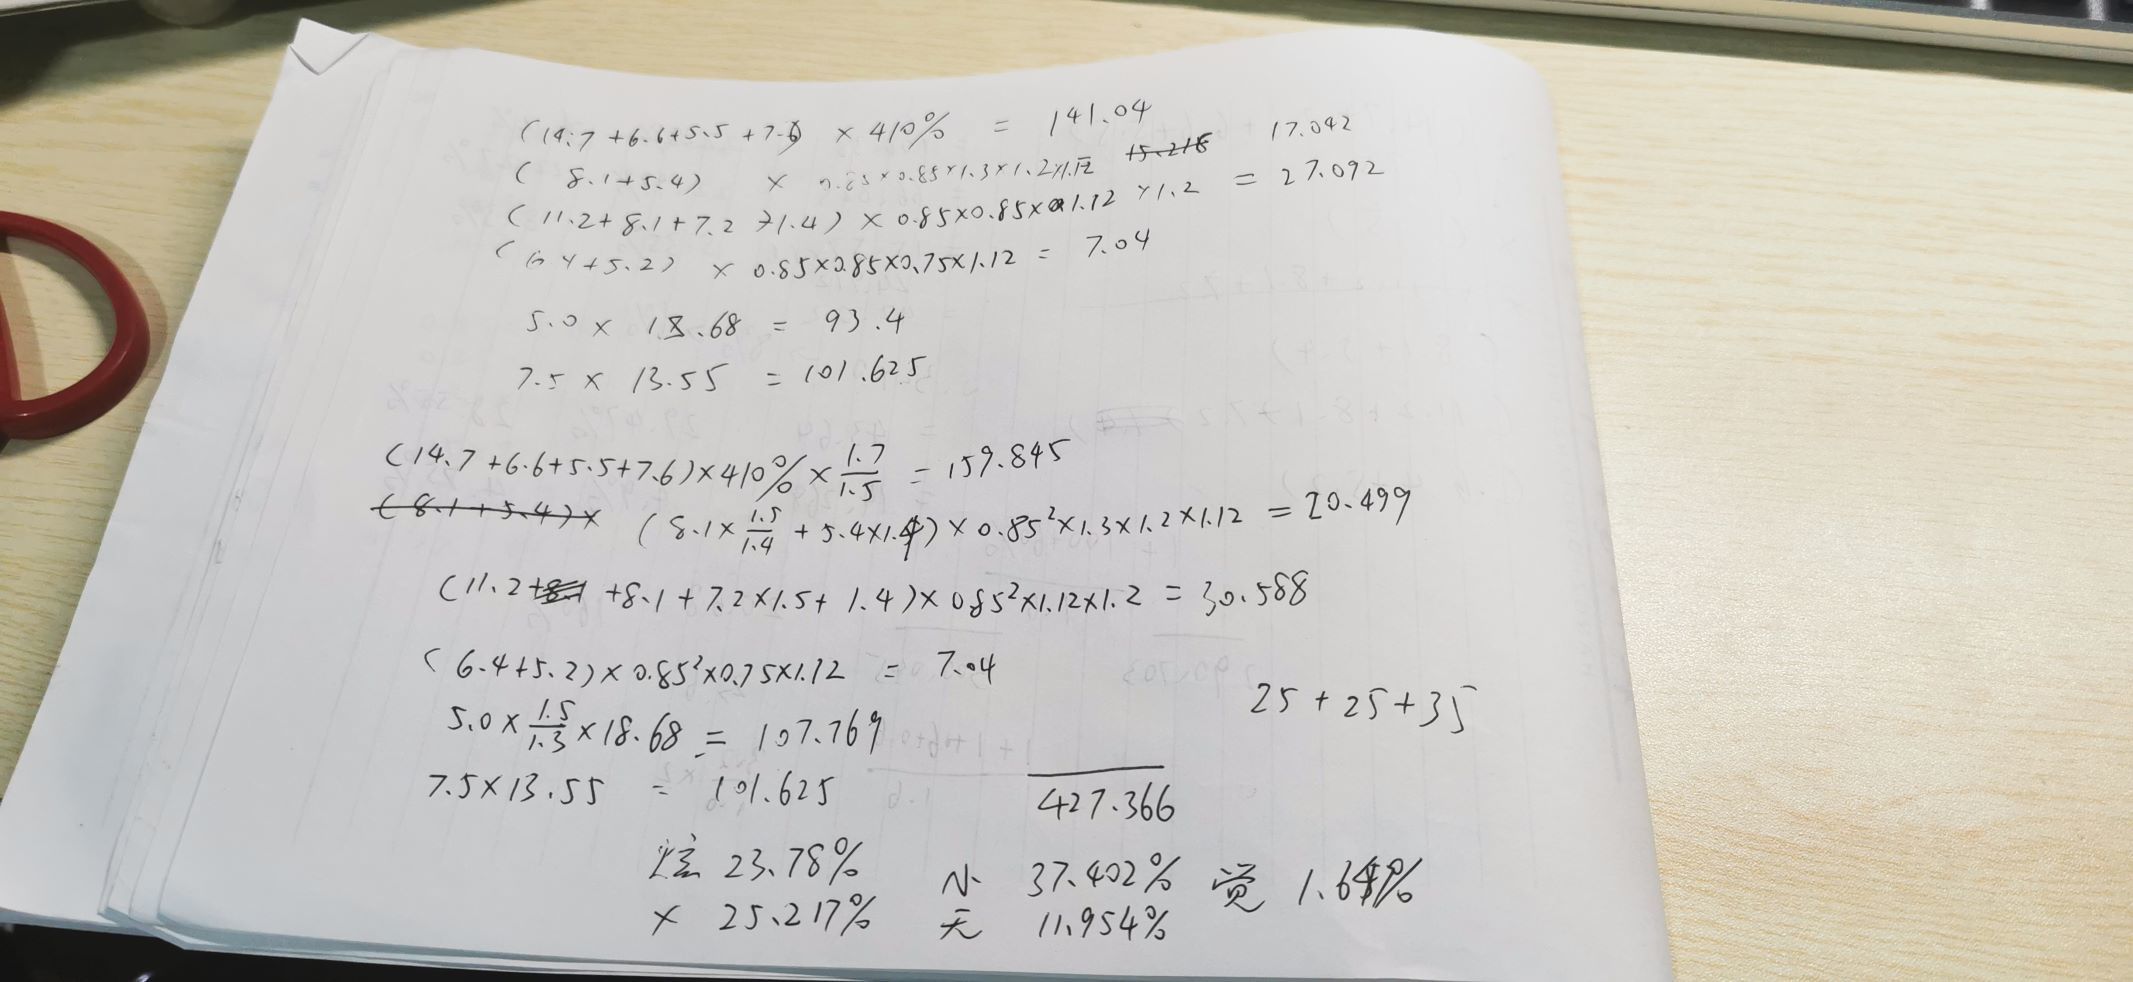 (14.7+6.6+5.5+7.6) × 410% = 141.04
(8.1+5.4) × 0.85×0.85×1.3×1.2×1.12 17.042
(11.2+8.1+7.2+1.4) × 0.85×0.85×1.12×1.2 = 27.092
(6.4+5.2) × 0.85×0.85×0.75×1.12 = 7.04
5.0 × 18.68 = 93.4
7.5 × 13.55 = 101.625
(14.7+6.6+5.5+7.6)×410%×1.7/1.5 = 159.845
(8.1+5.4)× (8.1×1.5/1.4 + 5.4×1.4)×0.85²×1.3×1.2×1.12 = 20.499
(11.2+8.1+7.2×1.5+1.4)×0.85²×1.12×1.2 = 30.588
(6.4+5.2)×0.85²×0.75×1.12 = 7.04
5.0×1.5/1.3×18.68 = 107.769
25+25+35
7.5×13.55 = 101.625
427.366
炫 23.78% 小 37.402% 觉
× 25.217% 无 11.954%